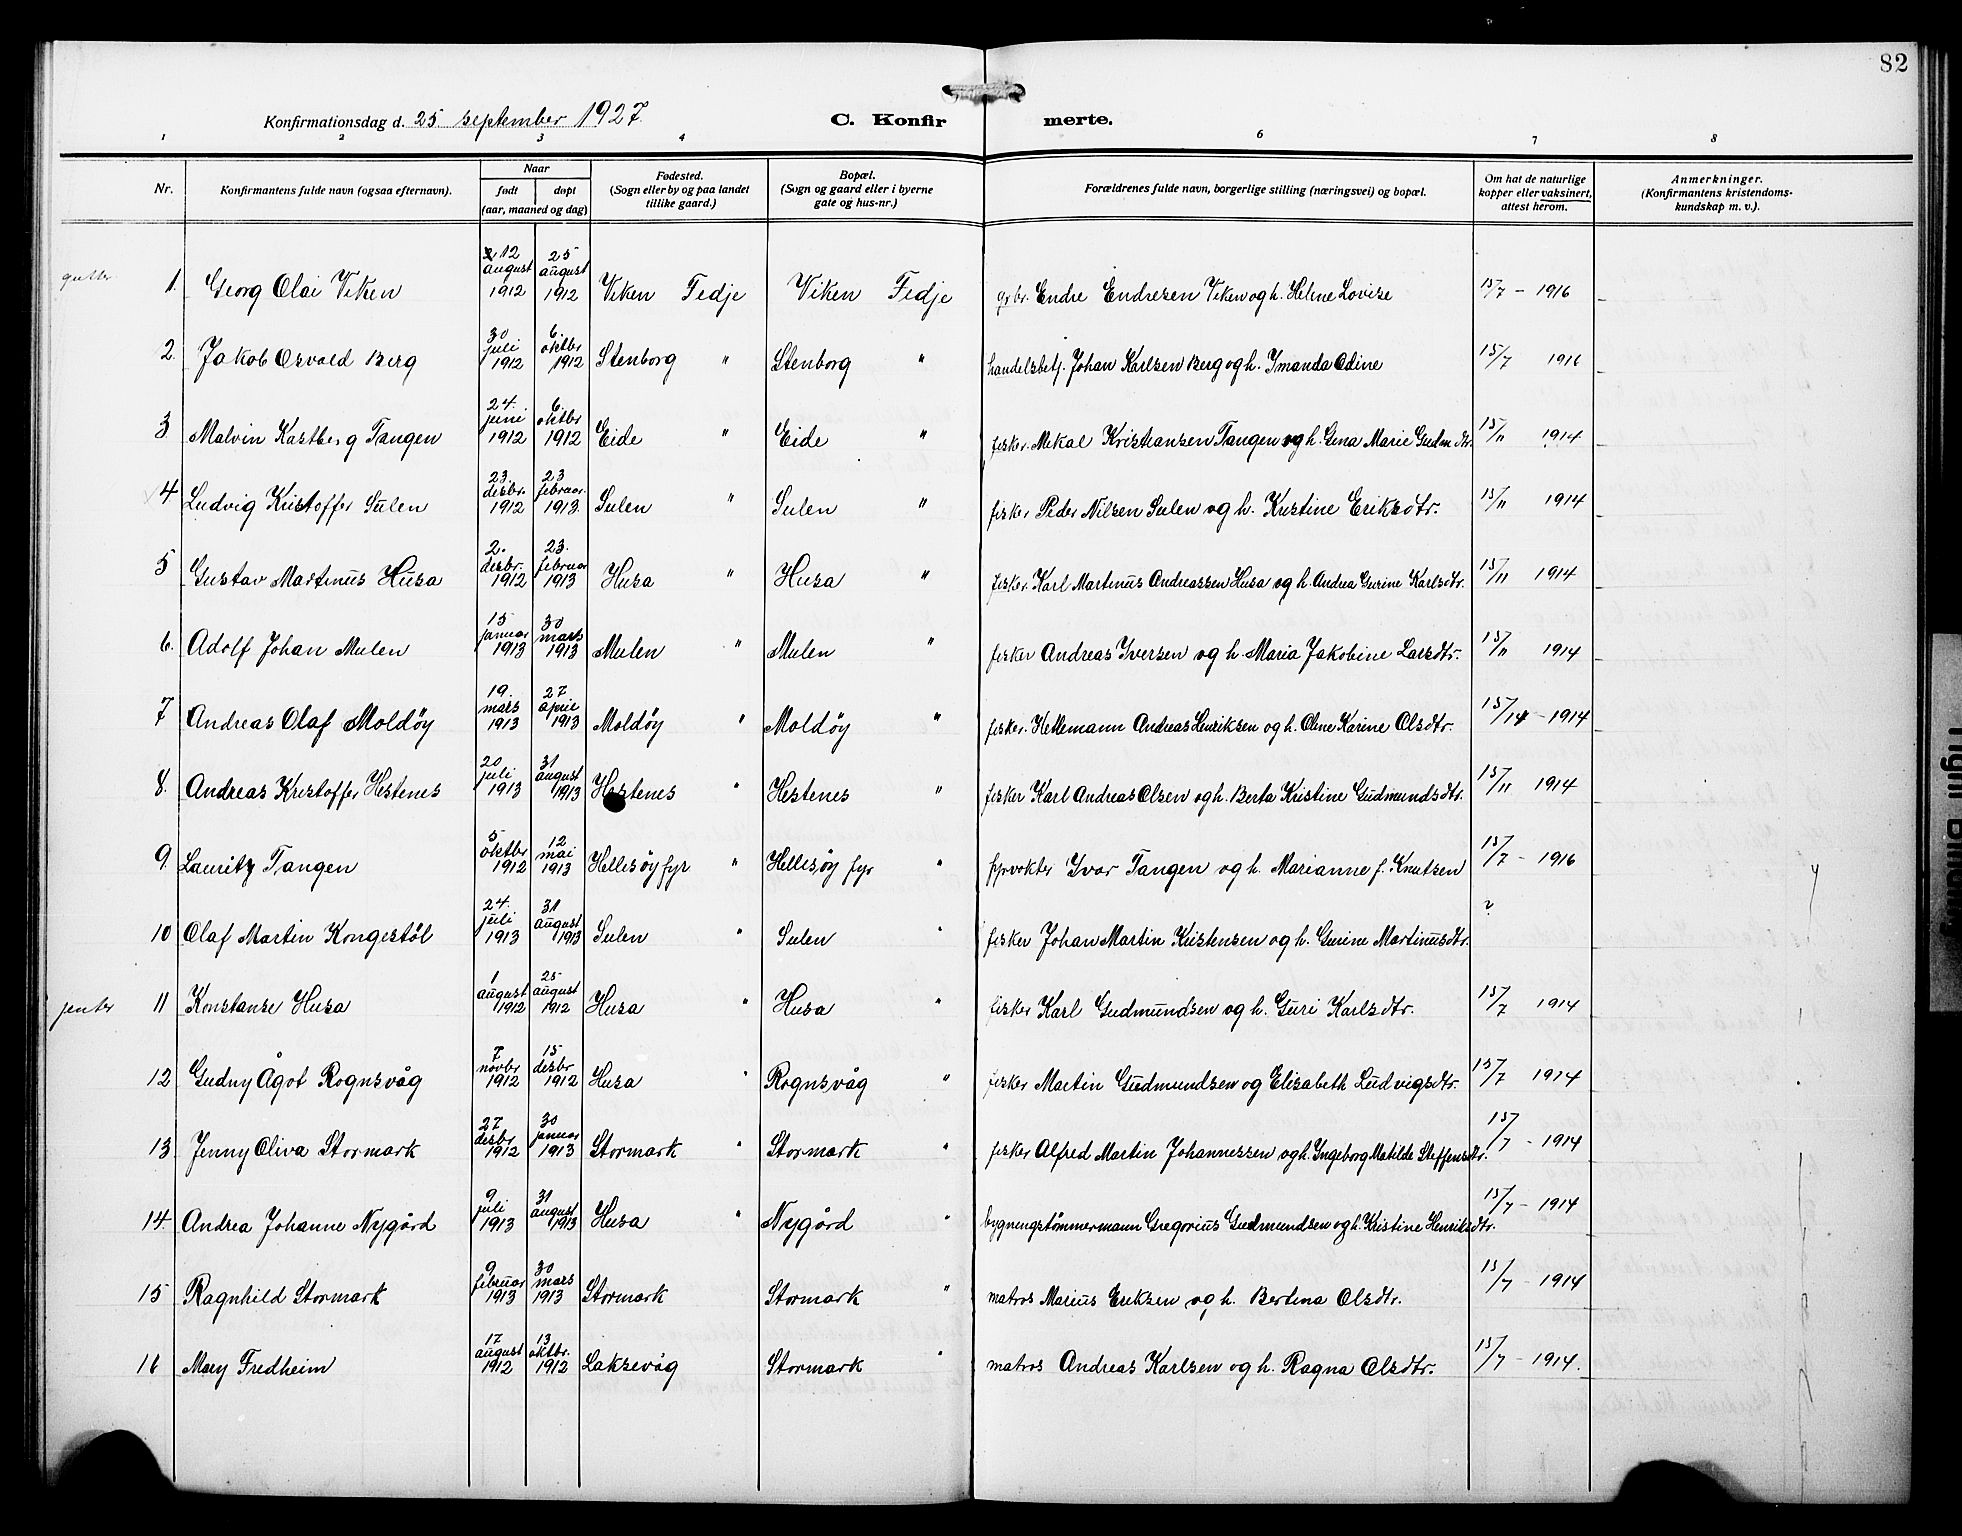 82
Konfirmationsdag d. 25 september 1927. C. Konfir merte.
1 2 3 4 6 7 8
Nr. Konfirmantens fulde navn (ogsaa efternavn). Naar født døpt (aar, maaned og dag) Fødested. (Sogn eller by og paa landet tillike gaard.) Bopæl. (Sogn og gaard eller i byerne gate og hus-nr.) Forældrenes fulde navn, borgerlige stilling (næringsvei) og bopæl. Om hat de naturlige kopper eller vaksinert, attest herom. Anmerkninger. (Konfirmantens kristendoms-kundskap m. v.).
gutter 1. Georg Olai Viken 12 august 1912 25 august 1912 Viken Fedje Viken Fedje gr.br. Endre Endresen Viken og h. Helene Lovise 15/7 - 1916
2. Jakob Osvald Berg 30 juli 1912 6. oktbr 1912 Stenborg " Stenborg " handelsbetj. Johan Karlsen Berg og h. Imanda Odine 15/7 1916
3. Malvin Kastberg Tangen 24. juni 1912 6. oktbr 1912 Eide " Eide " fisker. Mekal Kristiansen Tangen og h. Gina Marie Gudm.dtr. 15/11 1914
4 Ludvig Kristoffer Sulen 23. desbr. 1912 23 februar. 1913. Sulen " Sulen " fisker Peder Nilsen Sulen og h. Kristine Eriksdtr. 15/11 1914
5 Gustav Martinus Husa 2. desbr. 1912 23. februar 1913 Husa " Husa " fisker. Karl Martinus Andreassen Husa og h. Andrea Gurine Karlsdtr. 15/11 1914
6. Adolf Johan Mulen 15 januar 1913 30 mars 1913 Mulen " Mulen " fisker Andreas Iversen og h. Maria Jakobine Larsdtr. 15/11 1914
7 Andreas Olaf Moldöy 19. mars 1913 27 april 1913 Moldöy " Moldöy " fisker. Hellemann Andreas Henriksen og h. Oline Karine Olsdtr. 15/14 - 1914
8. Andreas Kristoffer Hestenes 20 juli 1913 31 august 1913 Hestenes " Hestenes " fisker Karl Andreas Olsen og h. Berta Kristine Gudmundsdtr. 15/11 1914
9. Lauritz Tangen 5 oktbr 1912 12 mai 1913 Hellesöy fyr " Hellesöy fyr " fyrvokter Ivar Tangen og h. Marianne f. Knutsen 15/7 - 1916
10 Olaf Martin Kongestöl 24. juli 1913 31 august 1913 Sulen " Sulen " fisker Johan Martin Kristensen og h. Gurine Martinusdtr. ?
jenter 11 Konstanse Husa 1 august 1912 25 august 1912 Husa " Husa " fisker Karl Gudmundsen og h. Guri Karlsdtr. 15/7 1914
12 Gudny Ågot Rognsvåg 7 novbr 1912 15 desbr 1912 Husa " Rognsvåg " fisker Martin Gudmundsen og Elisabeth Ludvigsdtr. 15/7 1914
13. Jenny Oliva Stormark 27 desbr 1912 30 januar 1913 Stormark " Stormark " fisker Alfred Martin Johannessen og h. Ingeborg Matilde Steffensdtr. 15/7 - 1914
14. Andrea Johanne Nygård 9 juli 1913 31 august 1913 Husa " Nygård " bygningstömmermann Gregorius Gudmundsen og h. Kristine Henriksdtr. 15/7 - 1914
15 Ragnhild Stormark 9 februar 1913 30 mars 1913 Stormark Stormark " matros Marius Eriksen og h. Bertina Olsdtr. 15/7 - 1914
16 Mary Fredheim 17 august 1912 13 oktbr. 1912 Laksevåg Stormark " matros Andreas Karlsen og h. Ragna Olsdtr. 15/7 - 1914.